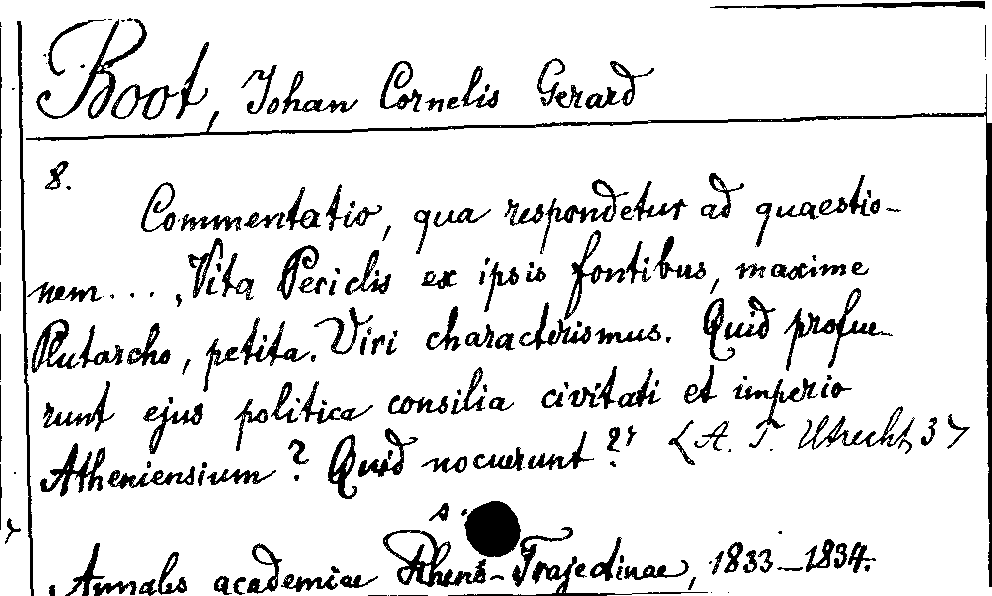 Boot, Johan Cornelis Gerard
8.
Commentatio, qua respondetur ad quaestio-
nem... "Vita Periclis ex ipsis fontibus, maxime
Plutarcho, petita. Viri characterismus. Quid profue-
runt ejus politica consilia civitati et imperio
Atheniensium? Quid nocuerunt?" <A. T. Utrecht, 37
s.
Annales academiae Rheno-Trajectinae, 1833-1834.